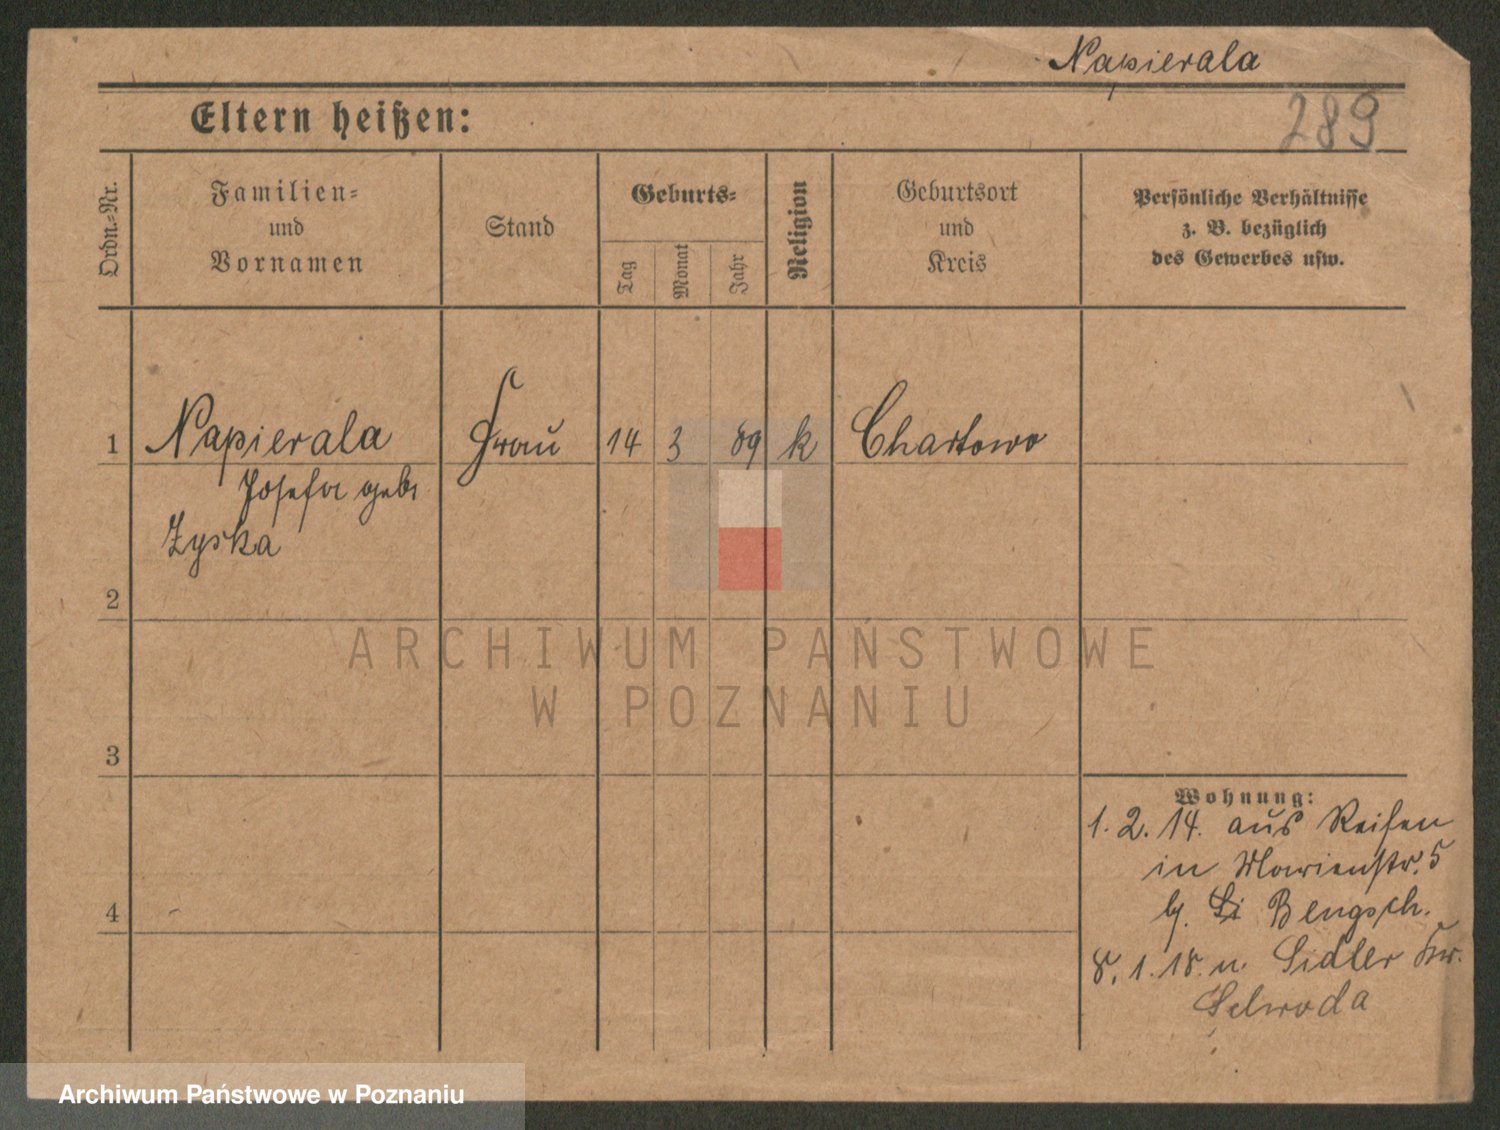 Napierala
Eltern heißen:
289
Ordn.-Nr.
Familien-
und
Vornamen
Stand
Geburts-
Tag
Monat
Jahr
Religion
Geburtsort
und
Kreis
Persönliche Verhältnisse
z. B. bezüglich
des Gewerbes usw.
1 Napierala Frau 14 3 89 k Chartowo
Josefa geb.
Zyska
2
3
4
Wohnung:
1. 2. 14. aus Reisen
in Marienstr. 5
b. Bengsch.
8. 1. 18. n. Sidler
ARCHIWUM PAŃSTWOWE
W POZNANIU
Archiwum Państwowe w Poznaniu